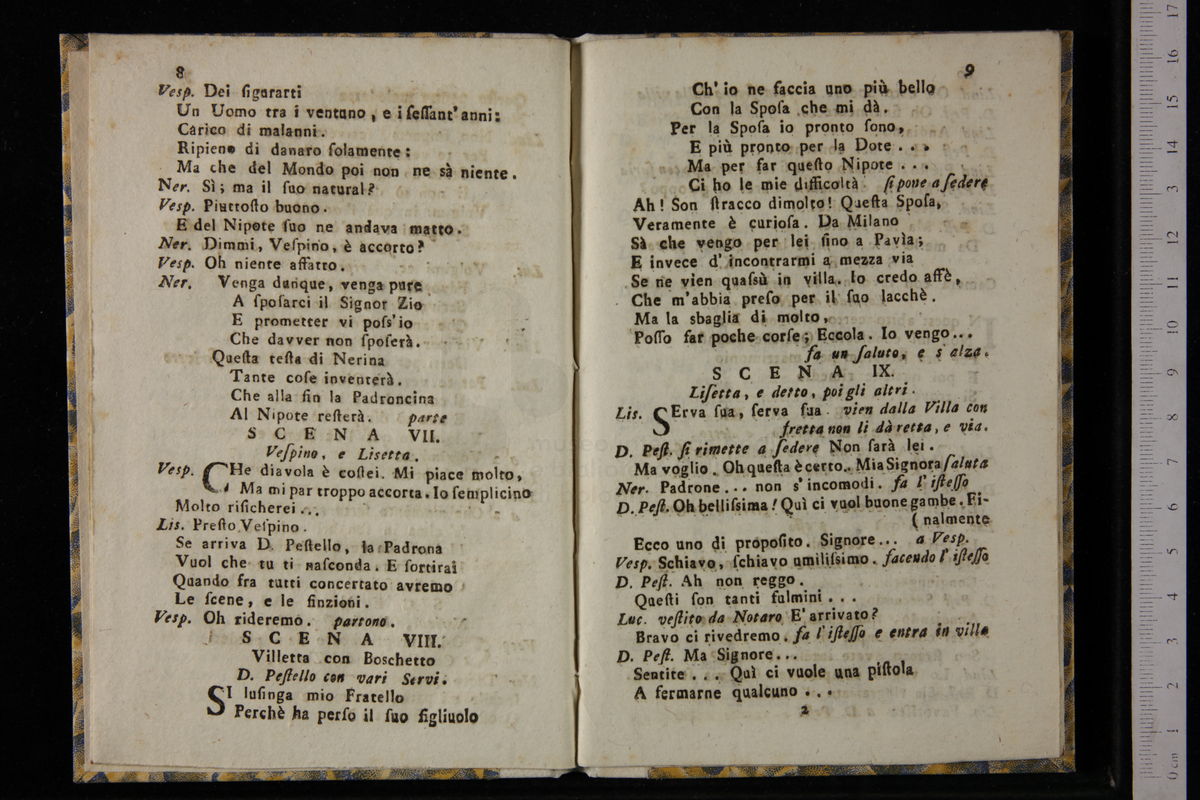 8
Vesp. Dei figurarti
Un Uomo tra i ventuno, e i ſeſſant' anni:
Carico di malanni.
Ripieno di danaro ſolamente:
Ma che del Mondo poi non ne sà niente.
Ner. Sì; ma il ſuo natural?
Vesp. Piuttoſto buono.
E del Nipote ſuo ne andava matto.
Ner. Dimmi, Veſpino, è accorto?
Vesp. Oh niente affatto.
Ner. Venga dunque, venga pure
A ſpoſarci il Signor Zio
E prometter vi poſs'io
Che davver non ſpoſerà.
Queſta teſta di Nerina
Tante coſe inventerà.
Che alla fin la Padroncina
Al Nipote reſterà. parte
S C E N A VII.
Veſpino, e Lisetta.
Vesp. CHe diavola è coſtei. Mi piace molto,
Ma mi par troppo accorta. Io ſemplicino
Molto riſicherei...
Lis. Preſto Veſpino.
Se arriva D. Peſtello, la Padrona
Vuol che tu ti naſconda. E ſortirai
Quando fra tutti concertato avremo
Le ſcene, e le finzioni.
Vesp. Oh rideremo. partono.
S C E N A VIII.
Villetta con Boschetto
D. Peſtello con vari Servi.
SI luſinga mio Fratello
Perchè ha perſo il ſuo figliuolo
9
Ch' io ne faccia uno più bello
Con la Spoſa che mi dà.
Per la Spoſa io pronto ſono,
E più pronto per la Dote...
Ma per far queſto Nipote...
Ci ho le mie difficoltà. ſi pone a ſedere
Ah! Son ſtracco dimolto! Queſta Spoſa,
Veramente è curioſa. Da Milano
Sà che vengo per lei ſino a Pavìa;
E invece d' incontrarmi a mezza via
Se ne vien quaſsù in villa. Io credo affè,
Che m'abbia preſo per il ſuo lacchè.
Ma la sbaglia di molto,
Poſſo far poche corſe; Eccola. Io vengo...
fa un ſaluto, e s'alza.
S C E N A IX.
Liſetta, e detto, poi gli altri.
Lis. SErva ſua, ſerva ſua. vien dalla Villa con
fretta non li dà retta, e via.
D. Peſt. ſi rimette a ſedere Non ſarà lei.
Ma voglio. Oh queſta è certo. Mia Signora ſaluta
Ner. Padrone... non s'incomodi. fa l' iſteſſo
D. Peſt. Oh belliſsima! Quì ci vuol buone gambe. Fi-
( nalmente
Ecco uno di propoſito. Signore... a Vesp.
Vesp. Schiavo, ſchiavo umiliſsimo. facendo l' iſteſſo
D. Peſt. Ah non reggo.
Queſti ſon tanti fulmini...
Luc. veſtito da Notaro E' arrivato?
Bravo ci rivedremo. fa l' iſteſſo e entra in villa
D. Peſt. Ma Signore...
Sentite... Quì ci vuole una piſtola
A fermarne qualcuno...
2
17
16
15
14
13
12
11
10
9
8
7
6
5
4
3
2
1
0 cm